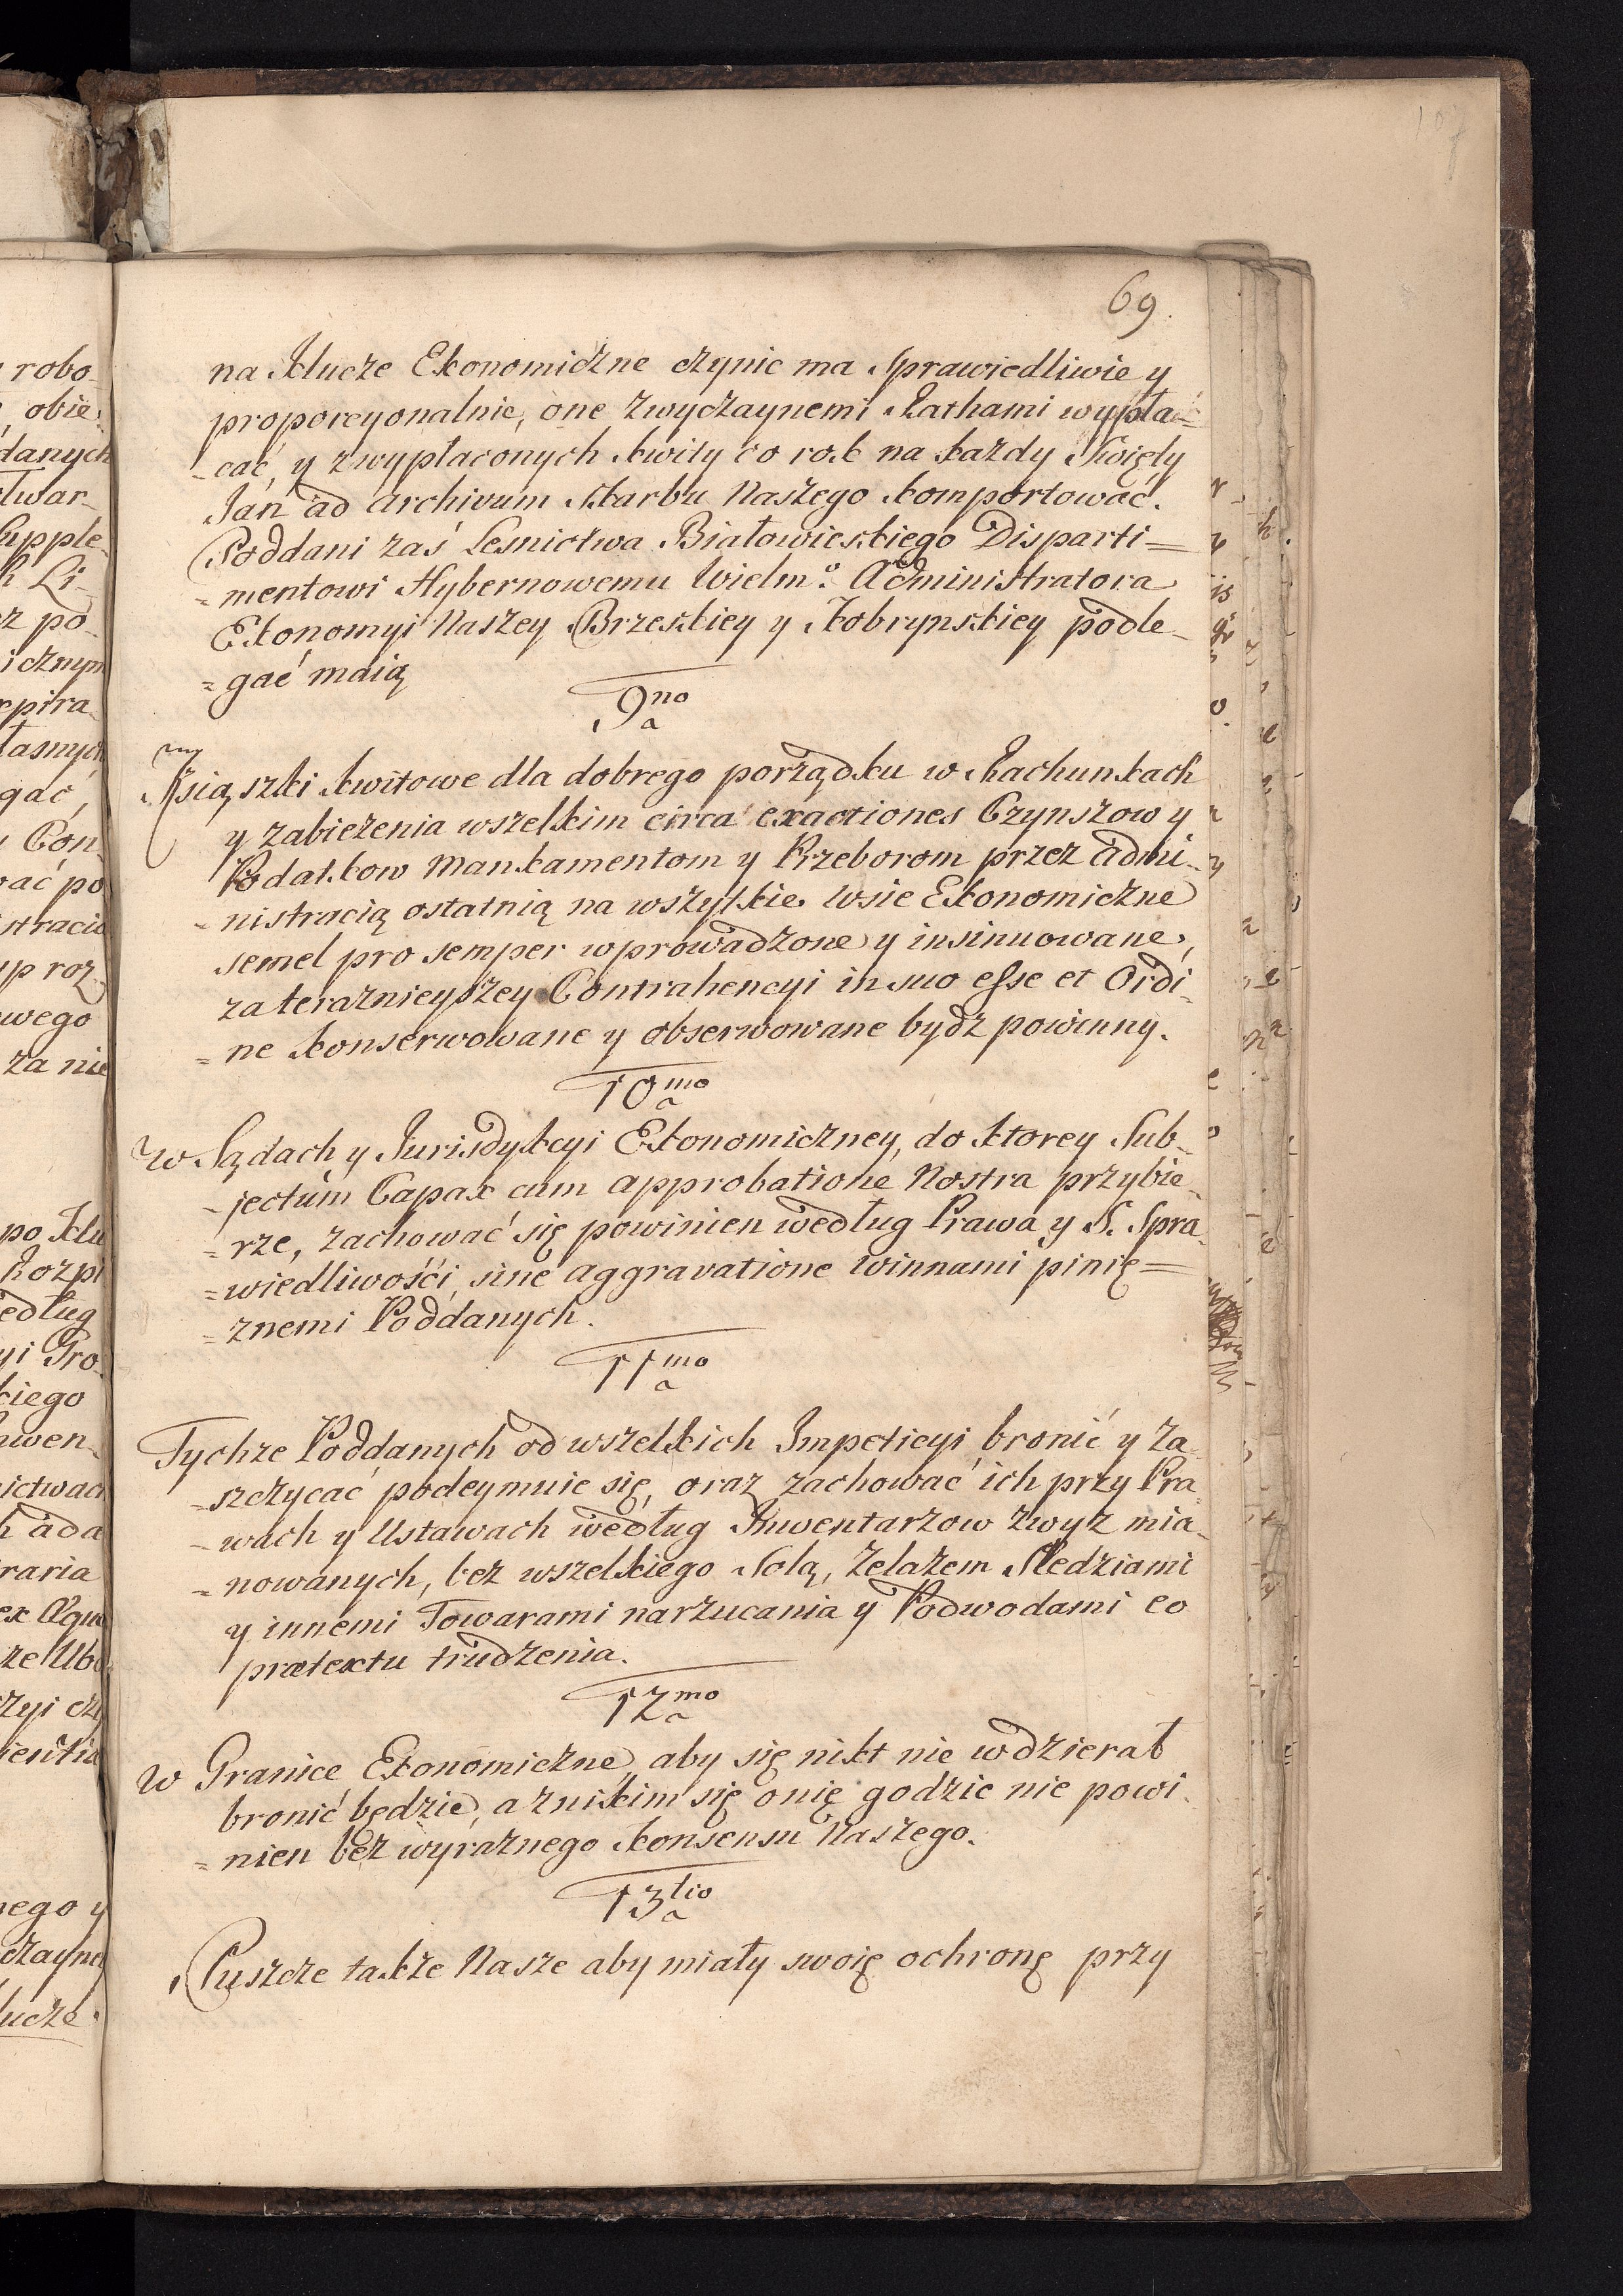 69.
na Klucze Ekonomiczne czynic ma Sprawiedliwie y
proporcyonalnie, one zwyczaynemi Rathami wypła=
-cać, y zwypłaconych kwity co rok na każdy Swięty
Jan ad Archivum Skarbu Naszego komportować.
Poddani zaś Lesnictwa Białowieskiego Disparti=
=mentowi Hybernowemu Wielm.º Administratora
Ekonomyi Naszey Brzeskiey y Kobrynskiey podle-
=gać maią
9no
a
Xsiąszki kwitowe dla dobrego porządku w Rachunkach
y zabieżenia wszelkim circa exactiones Czynszow y
Podatkow Mankamentom y Przeborom przez Admi-
-nistracią ostatnią na wszytkie Wsie Ekonomiczne
semel pro semper wprowadzone y insinuowane,
za teraznieyszey Contrahencyi in suo esse et Ordi-
=ne konserwowane y obserwowane bydz powinny.
10mo
a
W Sądach y Jurisdykcyi Ekonomiczney, do ktorey Sub-
-jectum Capax cum approbatione Nostra przybie-
=rze, zachować się powinien według Prawa y S. Spra-
=wiedliwośći, sine aggravatione winnami pinię=
=znemi Poddanych.
11mo
a
Tychże Poddanych od wszelkich Impeticyi bronić y Za-
-szczycać podeymuie się, oraz zachować ich przy Pra
-wach y Ustawach według Inwentarzow zwyż mia-
=nowanych, bez wszelkiego Solą, Zelazem Sledziami
y innemi Towarami narzucania y Podwodami eo
prætextu trudzenia.
12mo
a
W Granice Ekonomiczne, aby się nikt nie wdzierał
bronić będzie, a znikim się onię godzic nie powi-
=nien bez wyraznego konsensu Naszego.
13tio
a
Puszcze także Nasze aby miały swoię ochronę przy